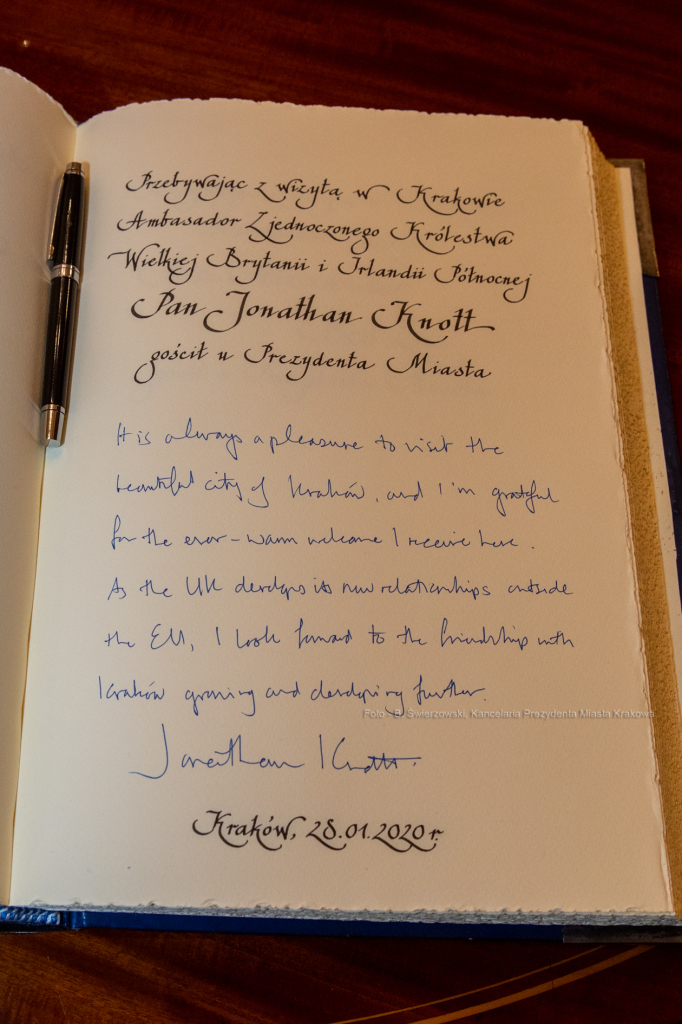 Przebywając z wizytą w Krakowie
Ambasador Zjednoczonego Królestwa
Wielkiej Brytanii i Irlandii Północnej
Pan Jonathan Knott
gościł u Prezydenta Miasta
It is always a pleasure to visit the
beautiful city of Kraków, and I'm grateful
for the ever-warm welcome I receive here.
As the UK develops its new relationships outside
the EU, I look forward to the friendship with
Kraków growing and developing further.
Foto - B. Świerzowski, Kancelaria Prezydenta Miasta Krakowa
Jonathan Knott.
Kraków, 28.01.2020 r.